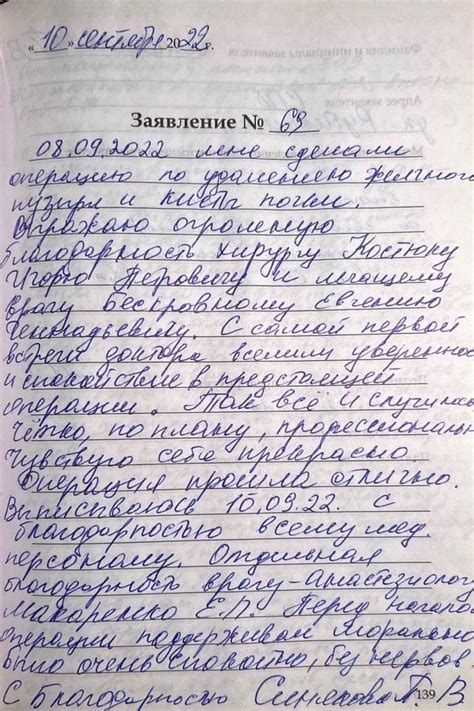 « 10 » сентября 2022 г.
Заявление № 69
08.09.2022 мне сделали
операцию по удалению желчного
пузыря и кисты почки.
Выражаю огромную
благодарность хирургу Костюку
Игорю Петровичу и лечащему
врагу Бескровному Евгению
Геннадьевичу. С самой первой
встречи доктора вселили уверенно
и спокойствие в предстоящей
операции. Так всё и случилось
Чётко, по плану, профессиональн
Чувствую себя прекрасно.
Операция прошла отлично.
Выписываюсь 10.09.22. С
благодарностью всему мед.
персоналу. Отдельная
благодарность врачу-анастезиолог
Макаренко Е.П. Перед начало
операции поддерживал морально
было очень спокойно, без нервов
С Благодарностью В
139